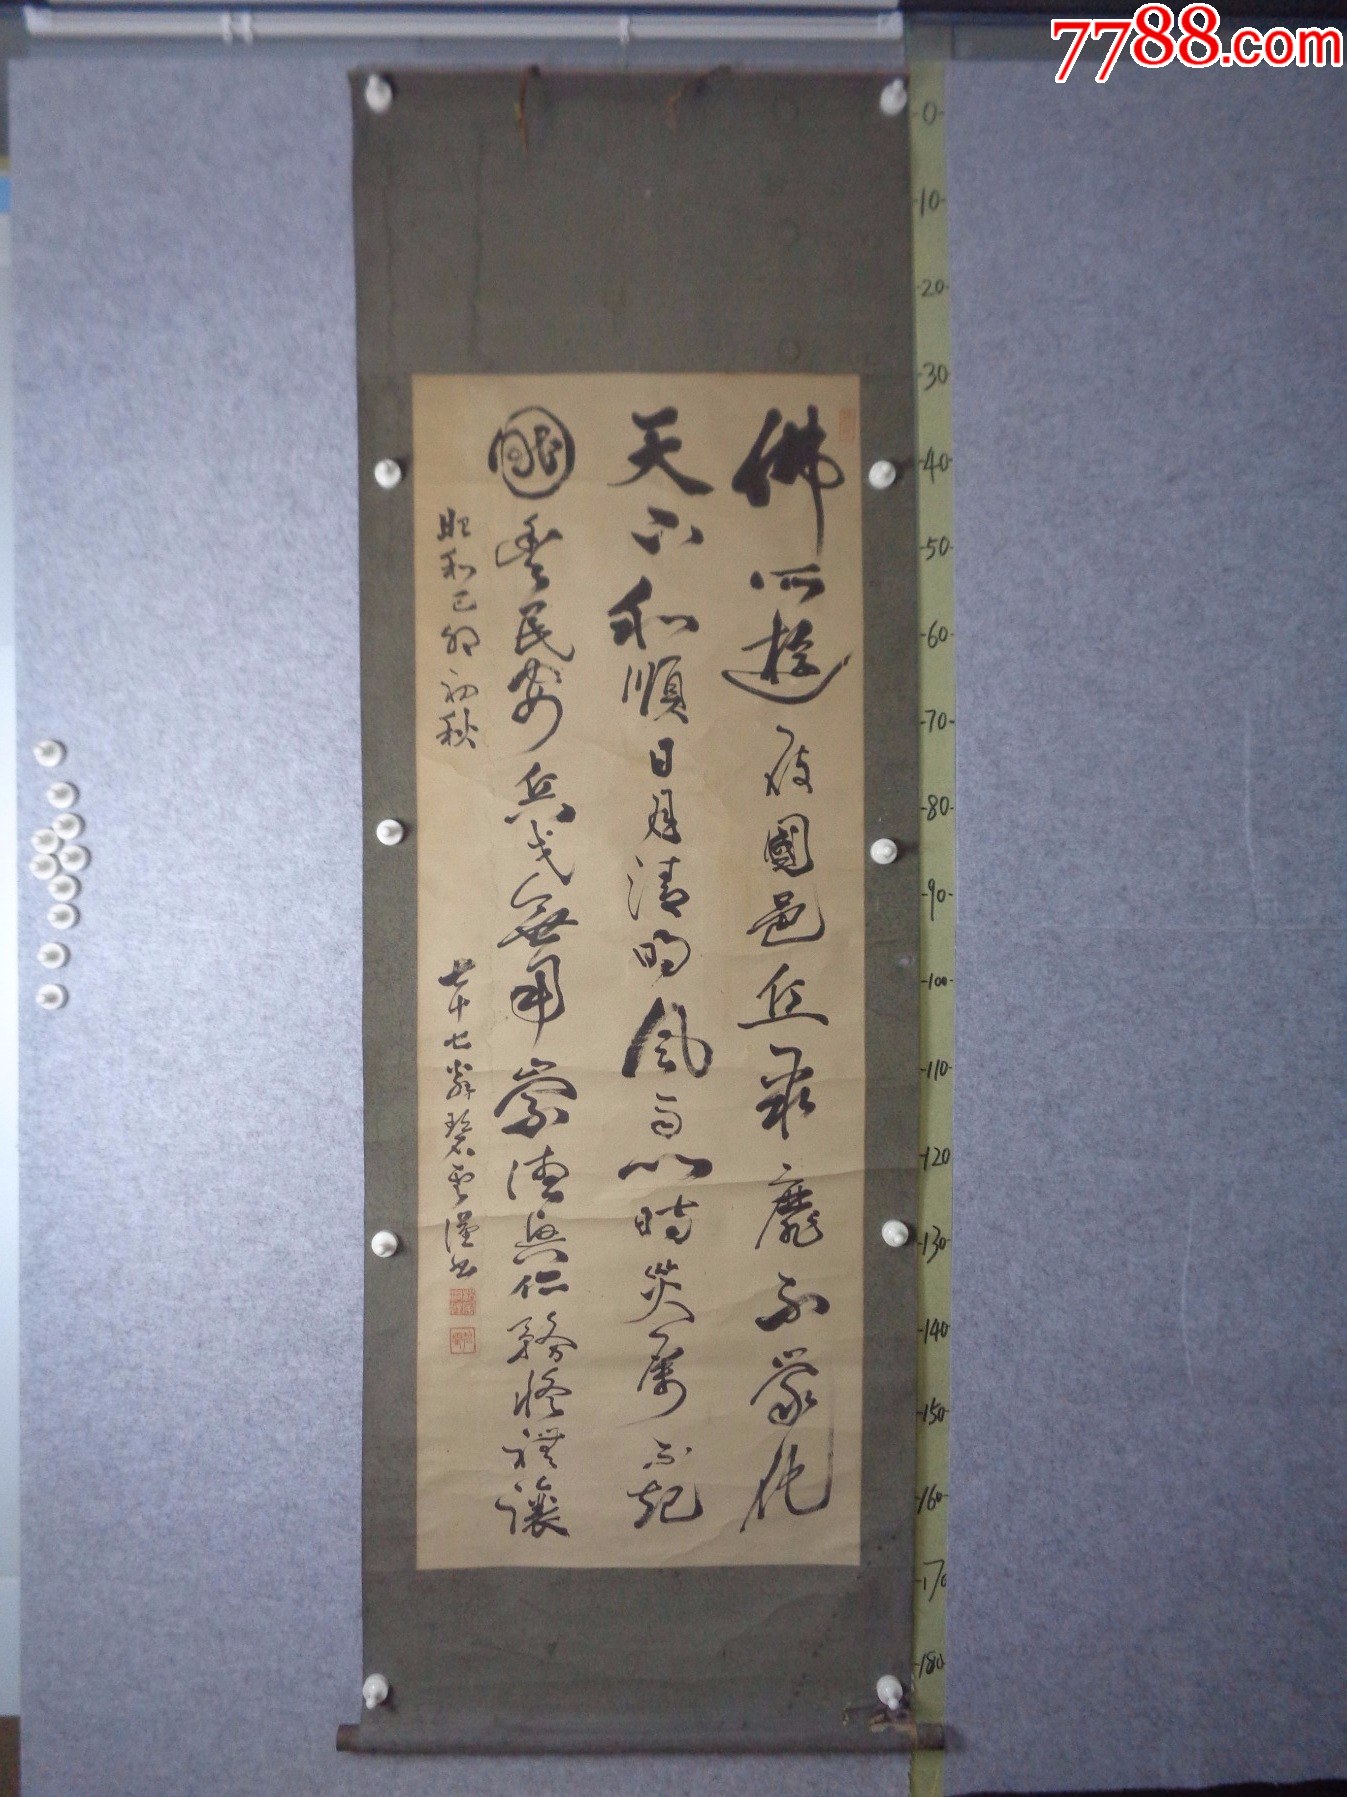 7788.com
佛所遊履國邑丘聚靡不蒙化
天下和順日月清明風雨以時災厲不起
國豊民安兵戈無用崇德興仁務修禮讓
昭和己卯初秋
七十七齡碧雲謹書
0
10
20
30
40
50
60
70
80
90
100
110
120
130
140
150
160
170
180